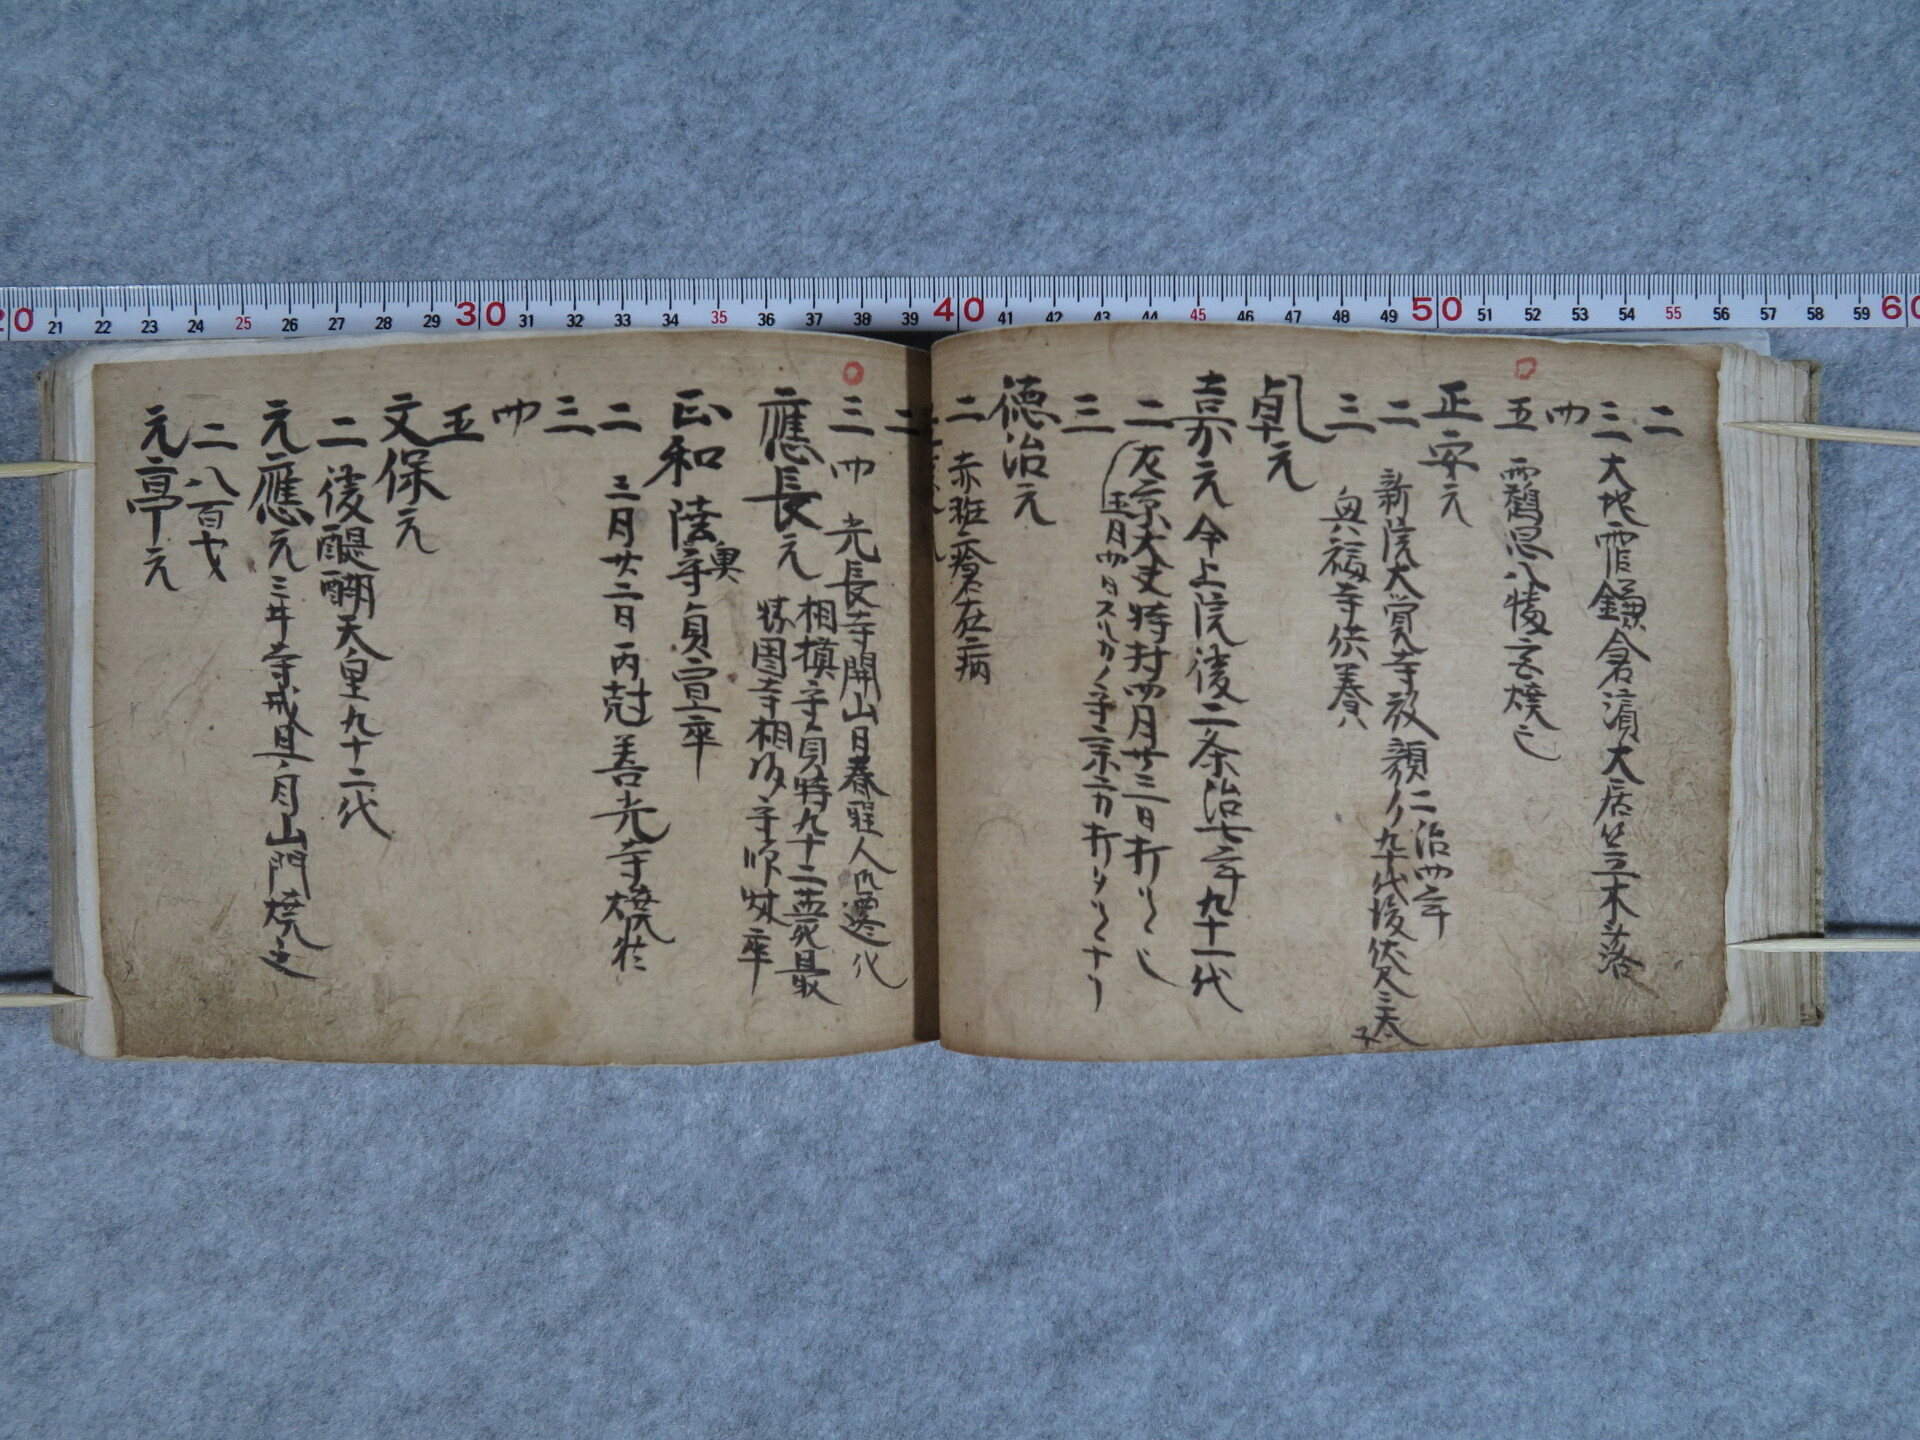 二
三 大地震鎌倉濱大居笠木落
四
五 雨鶴恩八幡宮焼之
正安元
二 新院大覚寺殿 諱ノ九十代後伏見天
治四年
三 興福寺供養
乾元
嘉元 今上院後二条治七年九十一代
二 左京大夫時村四月廿三日打レ
五月四日スルカノ守宗方打タレナリ
三
徳治元
二 赤班瘡在病
二
三 四 光長寺開山日春聖人御遷化
應長元 相模守貞時九十二薨最
勝園寺相
正和 陸奥守貞宣卒
二 三月廿二日丙尅善光寺焼
三
四
五
文保元
二 後醍醐天皇九十二代
元應元 三井寺戒旦月山門焼之
二 八百七
元亨元
20 21 22 23 24 25 26 27 28 29 30 31 32 33 34 35 36 37 38 39 40 41 42 43 44 45 46 47 48 49 50 51 52 53 54 55 56 57 58 59 60